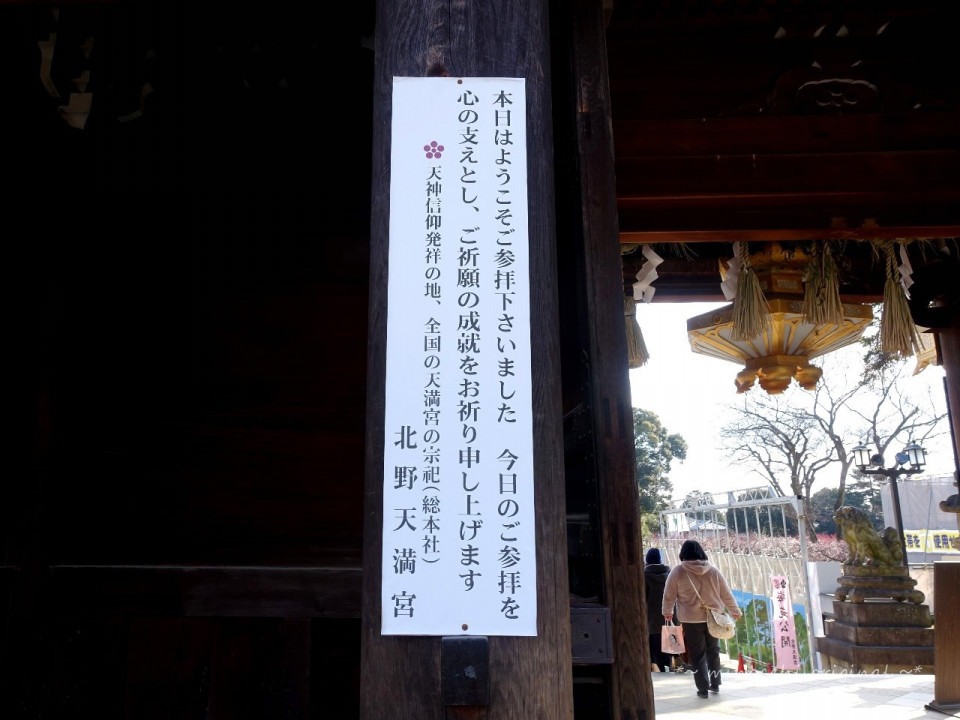 本日はようこそご参拝下さいました　今日のご参拝を
心の支えとし、ご祈願の成就をお祈り申し上げます
天神信仰発祥の地、全国の天満宮の宗祀(総本社)
北野天満宮
公開
使用